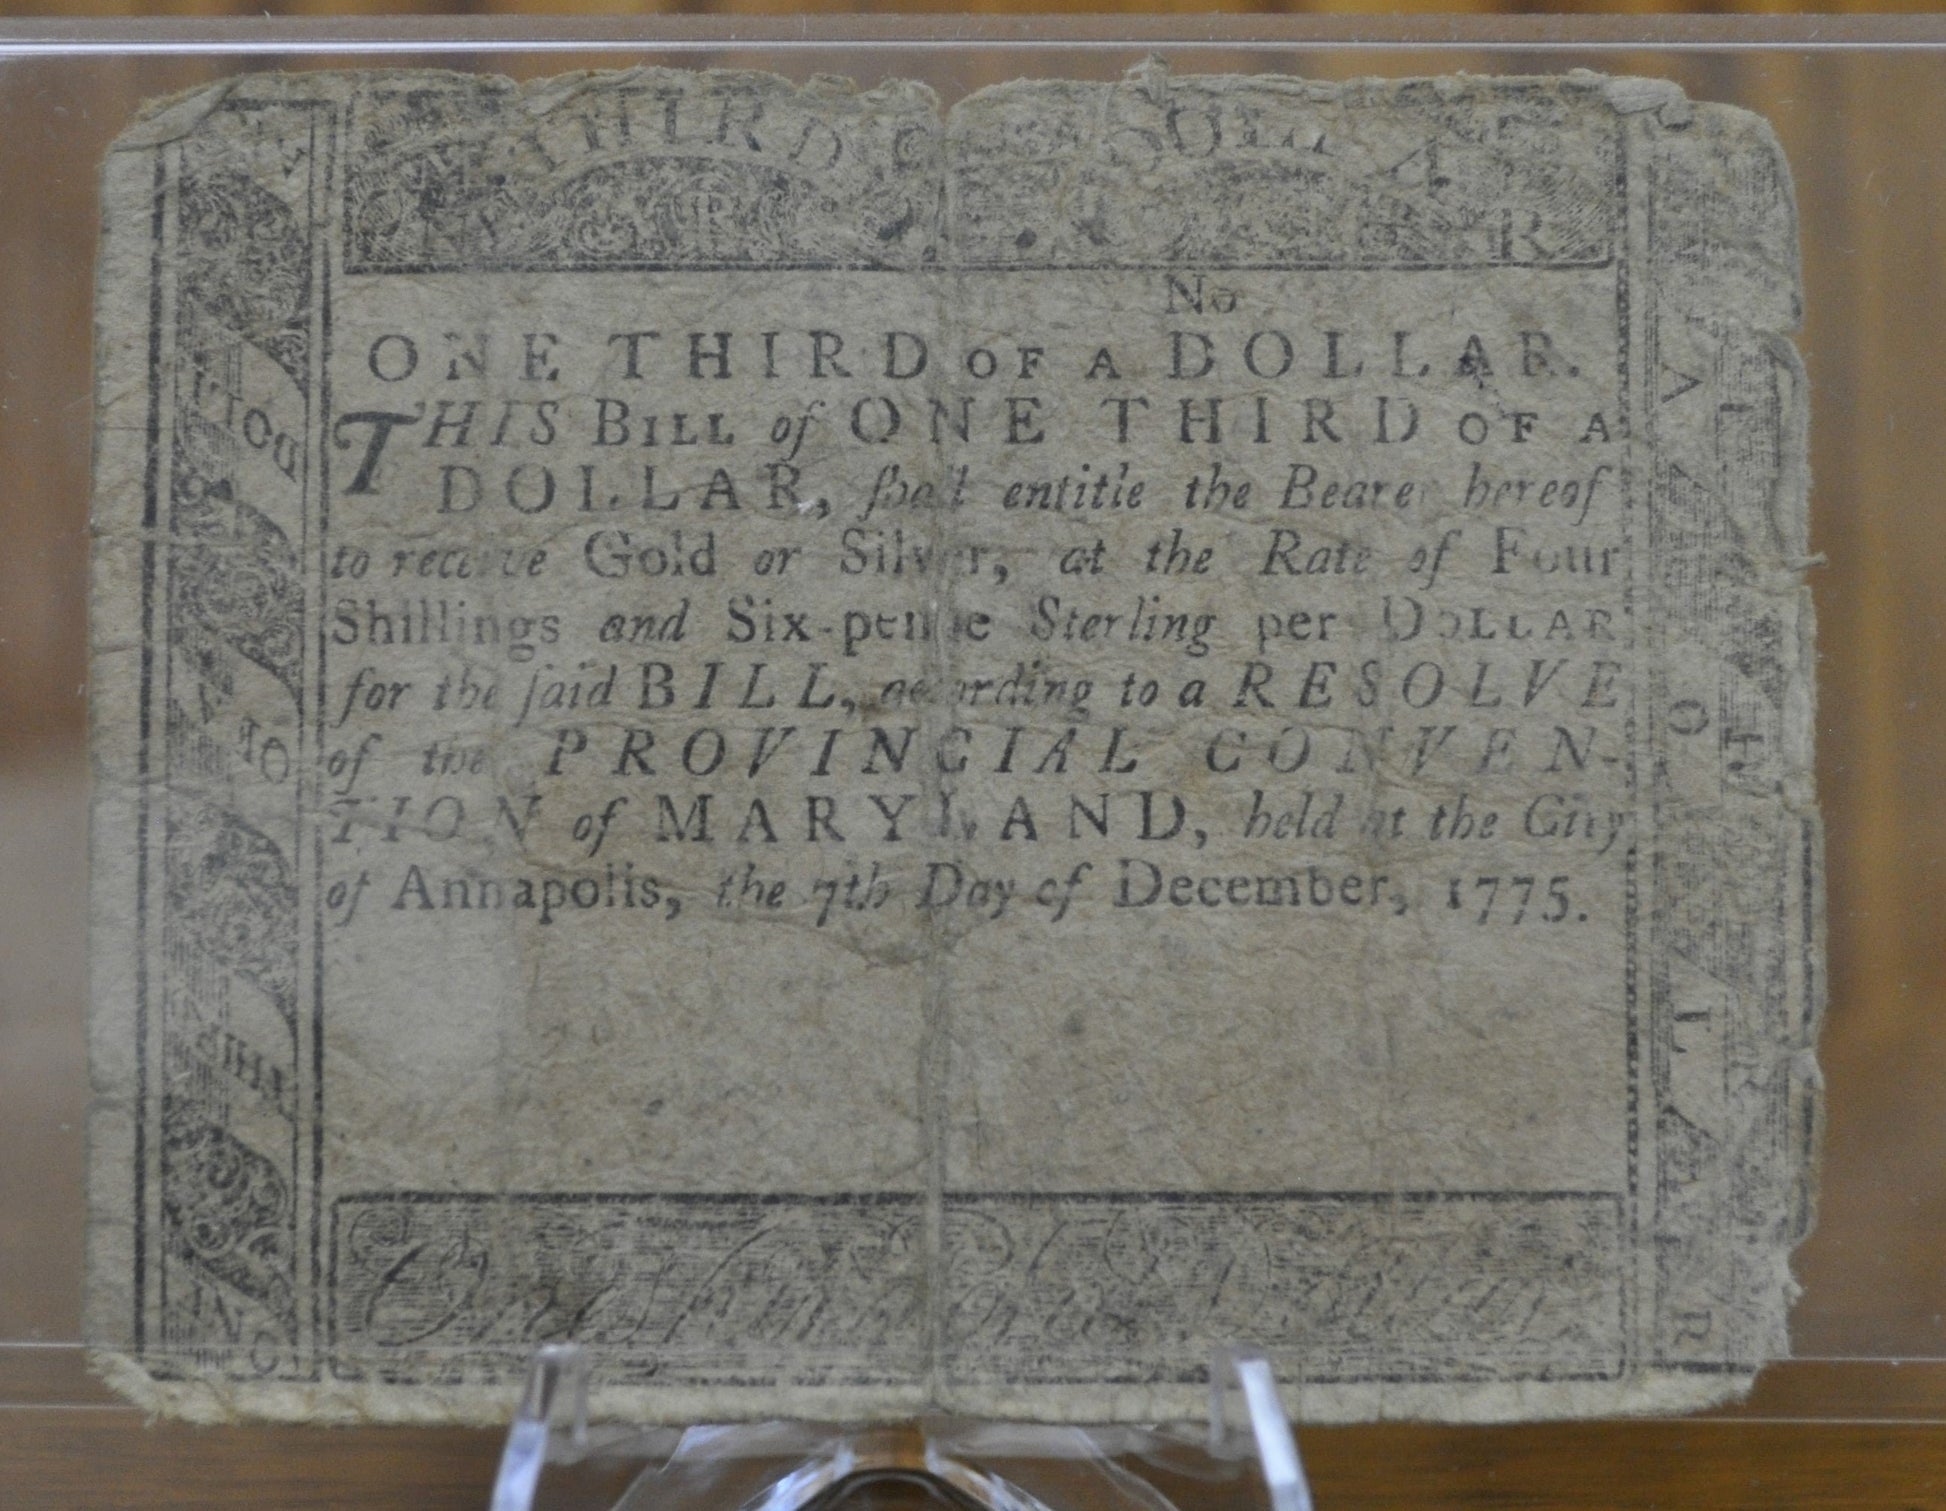 THIRD
No
ONE THIRD OF A DOLLAR.
THIS BILL of ONE THIRD OF A
DOLLAR, ſhall entitle the Bearer hereof
to receive Gold or Silver, at the Rate of Four
Shillings and Six-pence Sterling per DOLLAR
for the ſaid BILL, according to a RESOLVE
of the PROVINCIAL CONVEN-
TION of MARYLAND, held at the City
of Annapolis, the 7th Day of December, 1775.